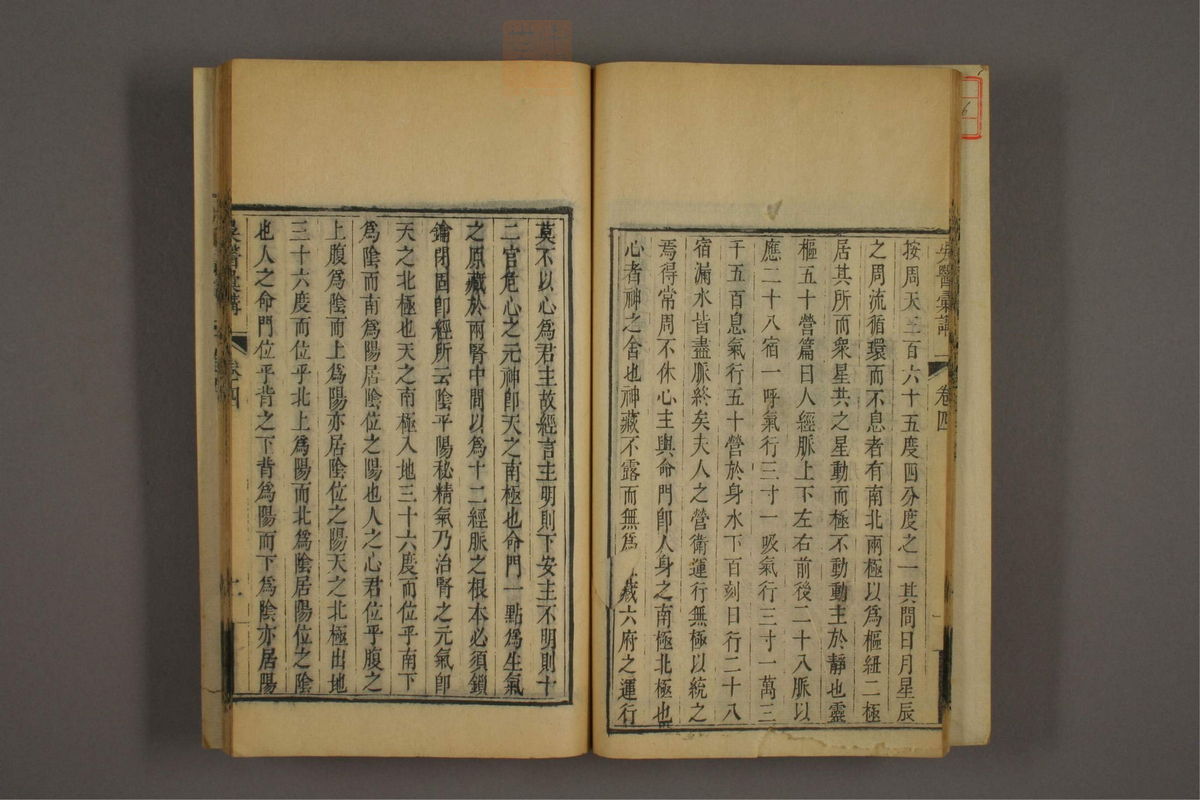 吳醫彙講 卷四
按周天三百六十五度四分度之一其間日月星辰
之周流循環而不息者有南北兩極以為樞紐二極
居其所而衆星共之星動而極不動動主於靜也靈
樞五十營篇曰人經脈上下左右前後二十八脈以
應二十八宿一呼氣行三寸一吸氣行三寸一萬三
千五百息氣行五十營於身水下百刻日行二十八
宿漏水皆盡脈終矣夫人之營衛運行無極以統之
焉得常周不休心主與命門卽人身之南極北極也
心者神之舍也神藏不露而無為 藏六府之運行
莫不以心爲君主故經言主明則下安主不明則十
二官危心之元神卽天之南極也命門一點爲生氣
之原藏於兩腎中間以爲十二經脈之根本必須鎖
鑰閉固卽經所云陰平陽秘精氣乃治腎之元氣卽
天之北極也天之南極入地三十六度而位乎南下
爲陰而南爲陽居陰位之陽也人之心君位乎腹之
上腹爲陰而上爲陽亦居陰位之陽天之北極出地
三十六度而位乎北上爲陽而北爲陰居陽位之陰
也人之命門位乎背之下背爲陽而下爲陰亦居陽
吳醫彙講 卷四 二